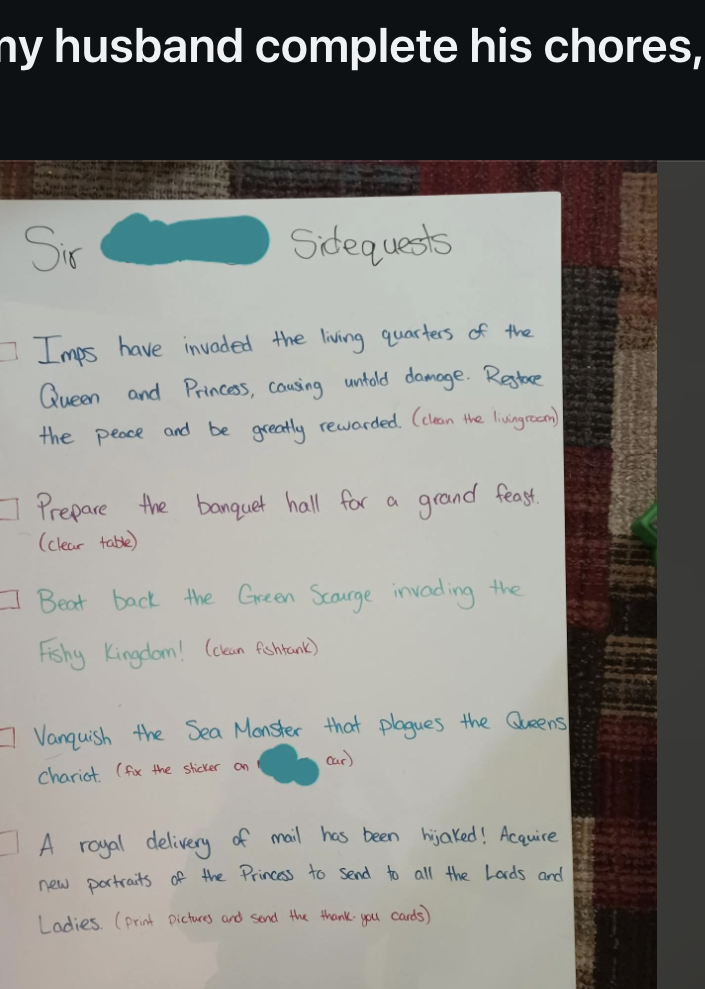 my husband complete his chores,
Sir Sidequests
Imps have invaded the living quarters of the
Queen and Princess, causing untold damage. Restore
the peace and be greatly rewarded. (clean the livingroom)
Prepare the banquet hall for a grand feast.
(clear table)
Beat back the Green Scourge invading the
Fishy Kingdom! (clean fishtank)
Vanquish the Sea Monster that plagues the Queens
Chariot. (fix the sticker on car)
A royal delivery of mail has been hijaked! Acquire
new portraits of the Princess to send to all the Lords and
Ladies. (print pictures and send the thank-you cards)